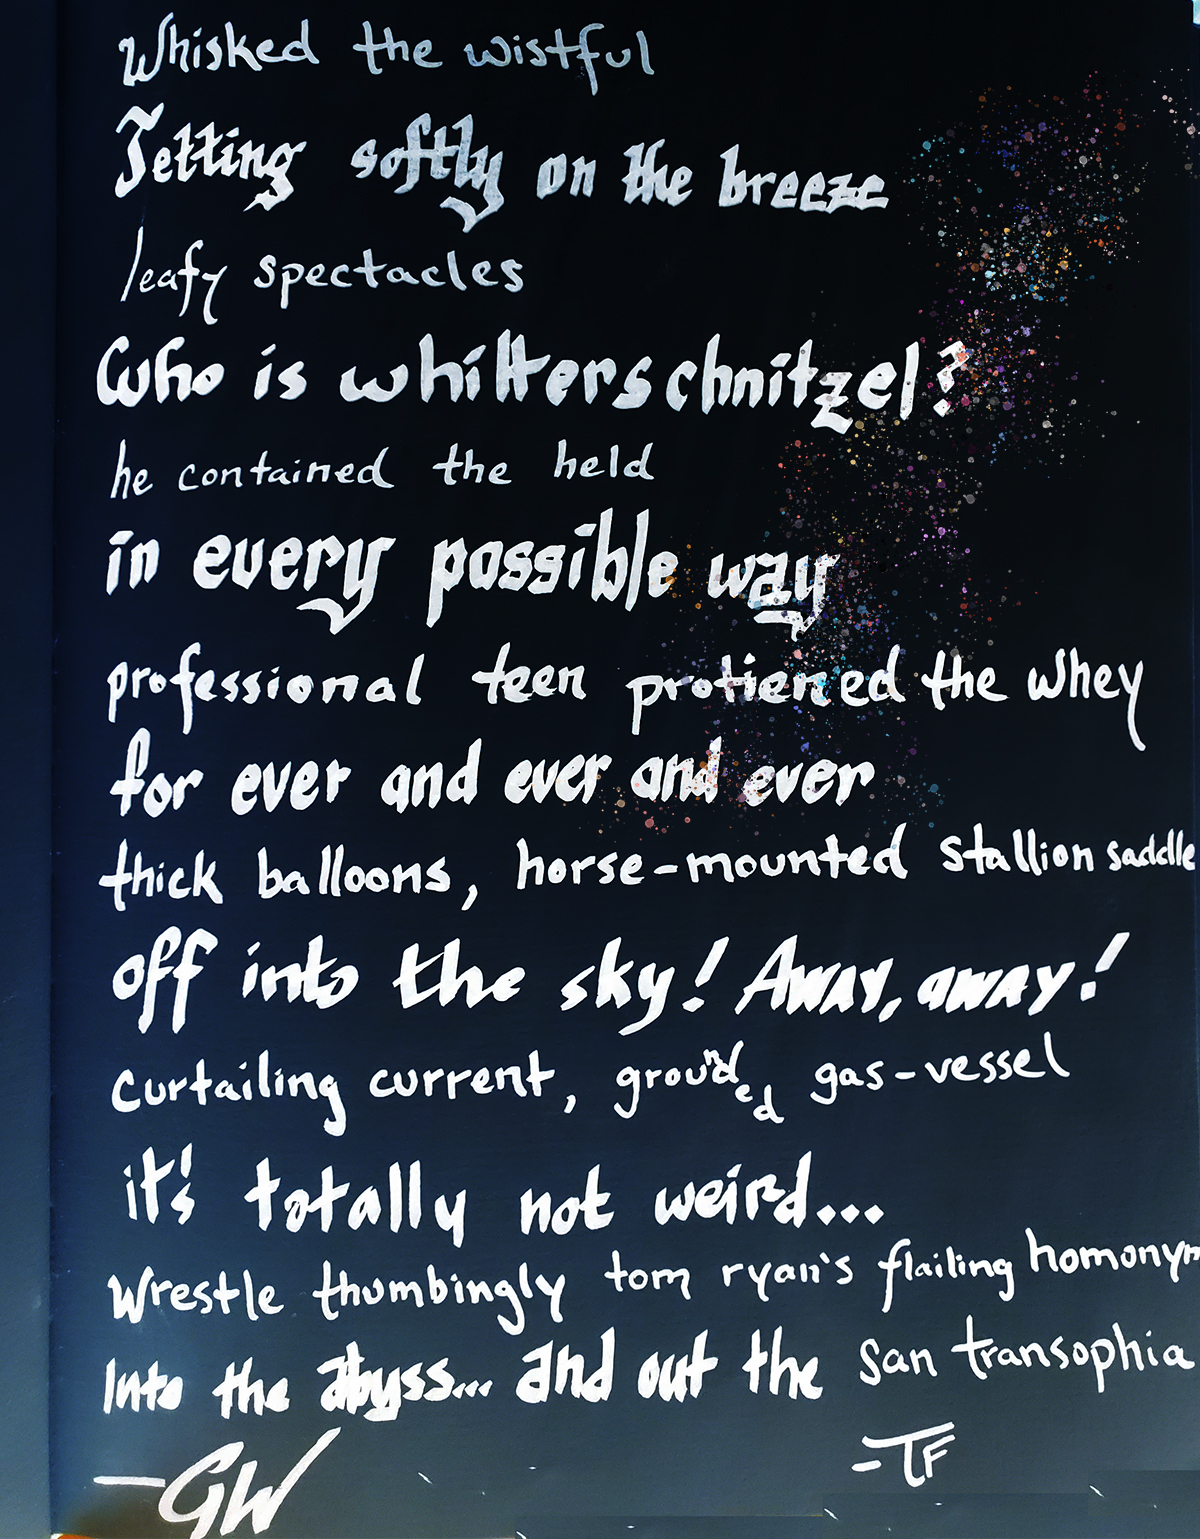 Whisked the wistful
Jetting softly on the breeze
leafy spectacles
Who is whitterschnitzel?
he contained the held
in every possible way
professional teen protiened the whey
for ever and ever and ever
thick balloons, horse-mounted stallion saddle
off into the sky! Away, away!
curtailing current, grounded gas-vessel
it's totally not weird...
Wrestle thumbingly tom ryan's flailing homonym
Into the abyss... and out the san transophia
-TF
-GW